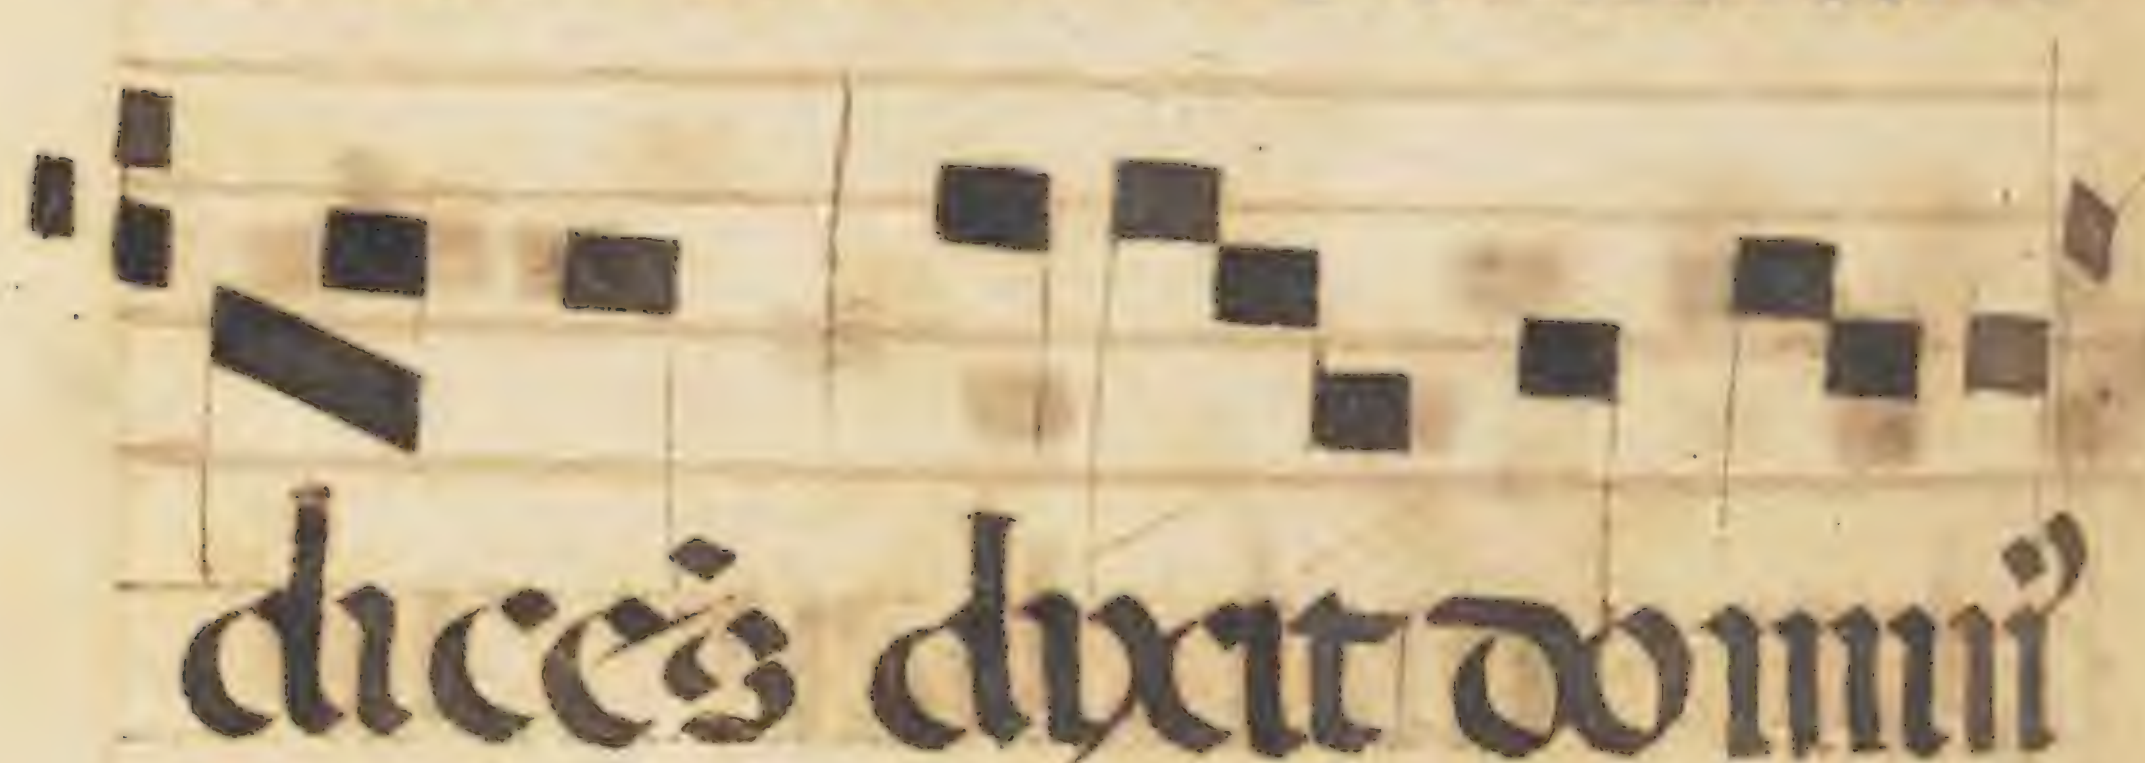 dicēs dixit domin⁹